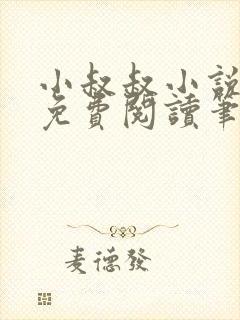 小叔叔小說
免費閱讀筆
麦德發